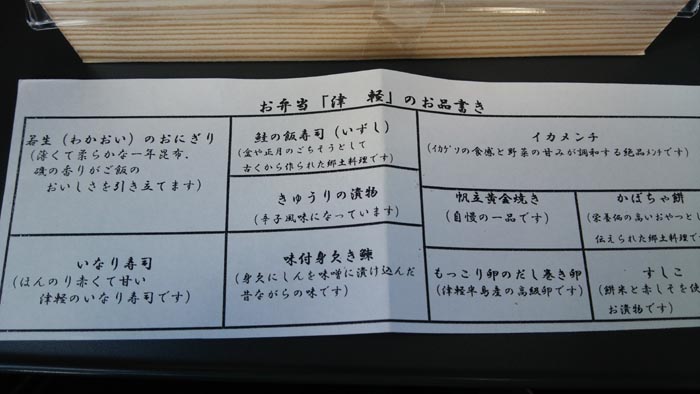 お弁当「津　軽」のお品書き
若生（わかおい）のおにぎり
（薄くて柔らかな一年昆布、
磯の香りがご飯の
おいしさを引き立てます）
鮭の飯寿司（いずし）
（盆や正月のごちそうとして
古くから作られた郷土料理です）
イカメンチ
（イカゲソの食感と野菜の甘みが調和する絶品メンチです）
きゅうりの漬物
（辛子風味になっています）
帆立黄金焼き
（自慢の一品です）
かぼちゃ餅
（栄養価の高いおやつとし
伝えられた郷土料理で
いなり寿司
（ほんのり赤くて甘い
津軽のいなり寿司です）
味付身欠き鰊
（身欠にしんを味噌に漬け込んだ
昔ながらの味です）
もっこり卵のだし巻き卵
（津軽半島産の高級卵です）
すしこ
（餅米と赤しそを使
お漬物です）